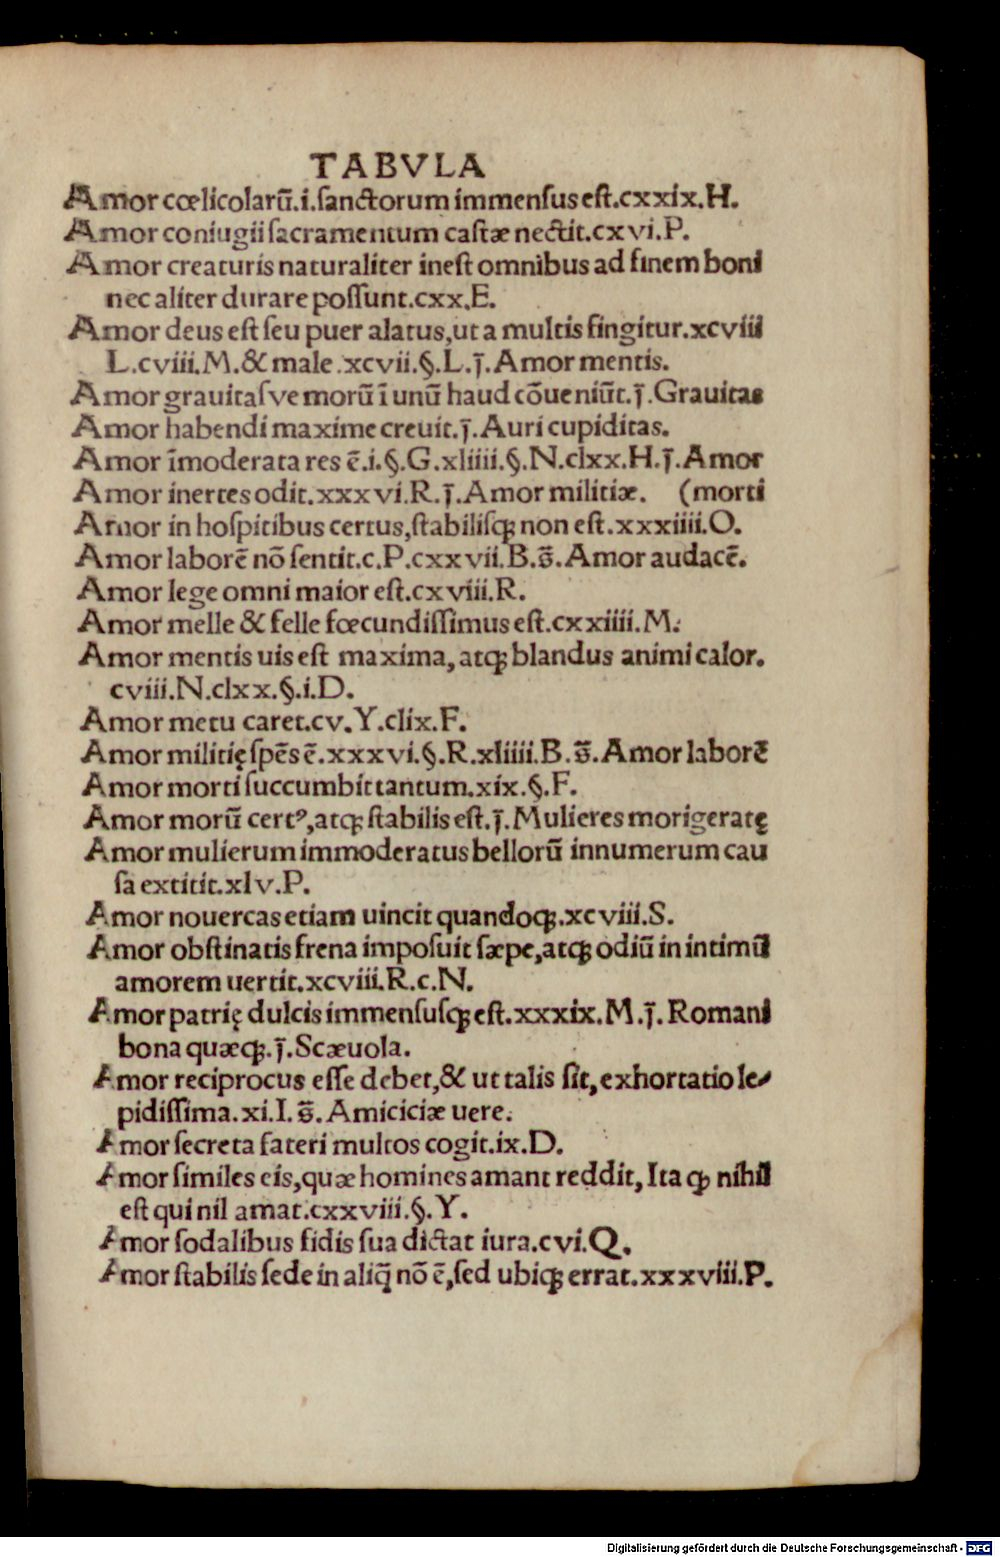 TABVLA
Amor cœlicolarū.i.ſanctorum immenſus eſt.cxxix.H.
Amor coniugii ſacramentum caſtæ nectit.cxvi.P.
Amor creaturis naturaliter ineſt omnibus ad finem boni
nec aliter durare poſſunt.cxx.E.
Amor deus eſt ſeu puer alatus,ut a multis fingitur.xcviii
L.cviii.M.& male.xcvii.§.L.j̄.Amor mentis.
Amor grauitaſve morū ī unū haud cōueniūt.j̄.Grauitas
Amor habendi maxime creuit.j̄.Auri cupiditas.
Amor īmoderata res ē.i.§.G.xliiii.§.N.clxx.H.j̄.Amor
Amor inertes odit.xxxvi.R.j̄.Amor militiæ. (morti
Amor in hoſpitibus certus,ſtabiliſqꝫ non eſt.xxxiiii.O.
Amor laborē nō ſentit.c.P.cxxvii.B.s̄.Amor audacē.
Amor lege omni maior eſt.cxviii.R.
Amor melle & felle fœcundiſſimus eſt.cxxiiii.M.
Amor mentis uis eſt maxima, atqꝫ blandus animi calor.
cviii.N.clxx.§.i.D.
Amor metu caret.cv.Y.clix.F.
Amor militię ſpēs ē.xxxvi.§.R.xliiii.B.s̄.Amor laborē
Amor morti ſuccumbit tantum.xix.§.F.
Amor morū certꝰ,atqꝫ ſtabilis eſt.j̄.Mulieres morigeratę
Amor mulierum immoderatus bellorū innumerum cau
ſa extitit.xlv.P.
Amor nouercas etiam uincit quandoqꝫ.xcviii.S.
Amor obſtinatis frena impoſuit ſæpe,atqꝫ odiū in intimū
amorem uertit.xcviii.R.c.N.
Amor patrię dulcis immenſuſqꝫ eſt.xxxix.M.j̄.Romani
bona quæqꝫ.j̄.Scæuola.
Amor reciprocus eſſe debet,& ut talis ſit, exhortatio le⸗
pidiſſima.xi.I.s̄.Amiciciæ uere.
Amor ſecreta fateri multos cogit.ix.D.
Amor ſimiles eis,quæ homines amant reddit, Ita qꝫ nihil
eſt qui nil amat.cxxviii.§.Y.
Amor ſodalibus fidis ſua dictat iura.cvi.Q.
Amor ſtabilis ſede in aliq̄ nō ē,ſed ubiqꝫ errat.xxxviii.P.
Digitalisierung gefördert durch die Deutsche Forschungsgemeinschaft - DFG